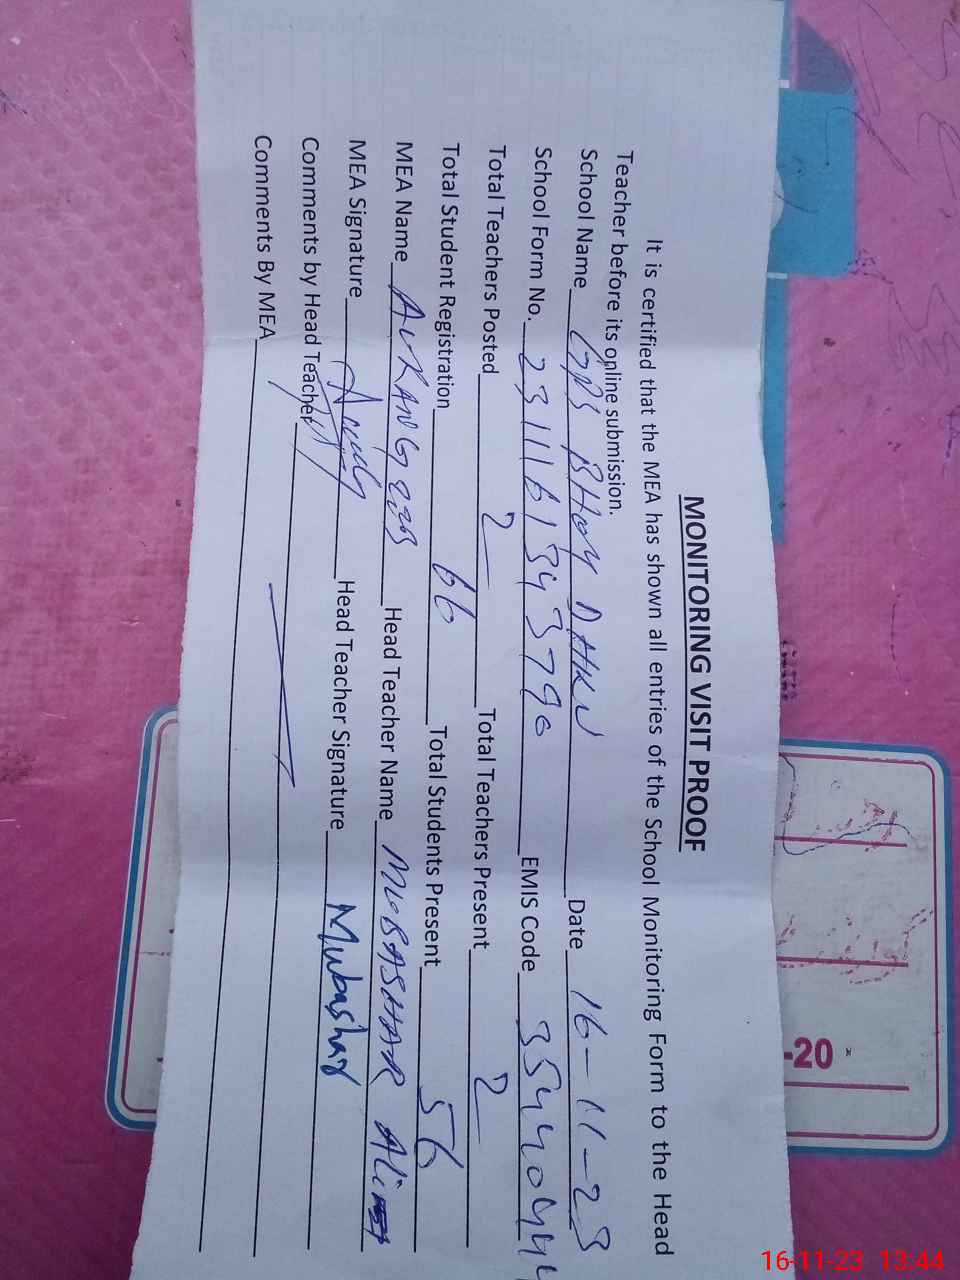 MONITORING VISIT PROOF
It is certified that the MEA has shown all entries of the School Monitoring Form to the Head
Teacher before its online submission.
School Name GPS BHOY DHKU Date 16-11-23
School Form No. 231116134343790 EMIS Code
Total Teachers Posted 2 Total Teachers Present 2
Total Student Registration 66 Total Students Present 56
MEA Name AURANGZEB Head Teacher Name MUBASHAR Ali
MEA Signature Head Teacher Signature Mubashar
Comments by Head Teacher
Comments By MEA
-20
16-11-23 13:44